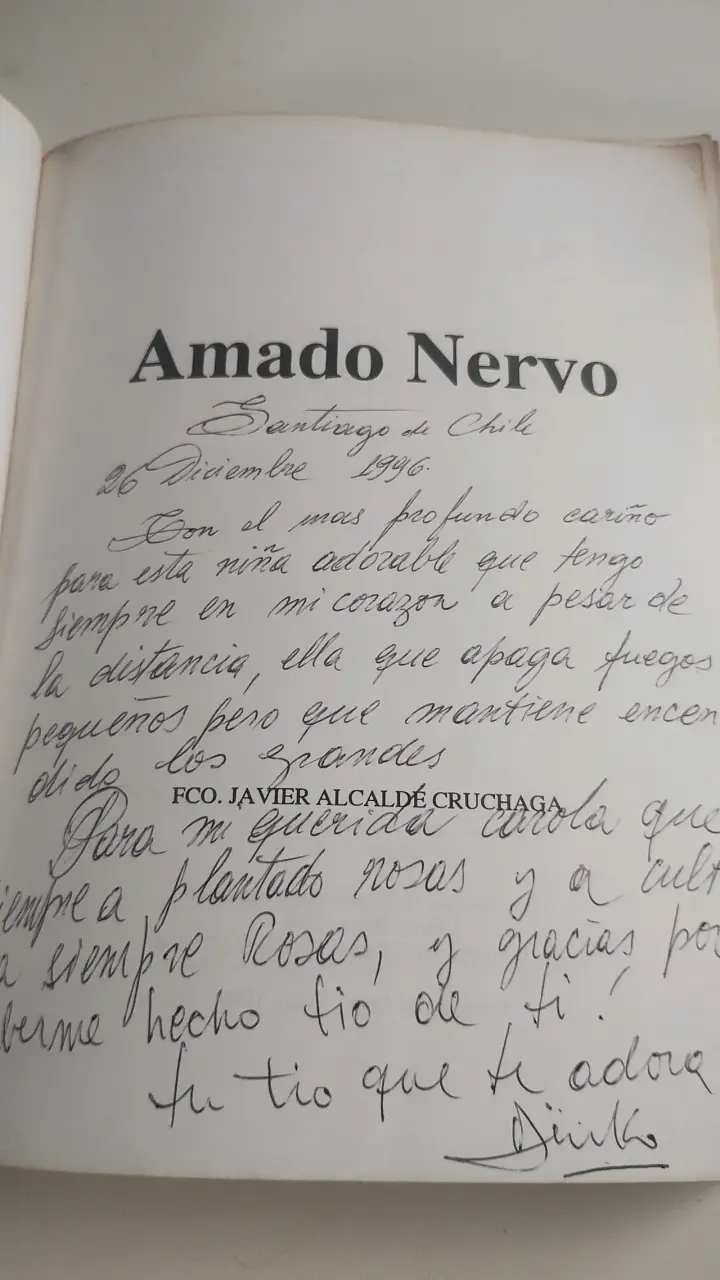 Amado Nervo
Santiago de Chile
26 Diciembre 1996.
Con el mas profundo cariño
para esta niña adorable que tengo
siempre en mi corazon a pesar de
la distancia, ella que apaga fuegos
pequeños pero que mantiene encen
dido los grandes
FCO. JAVIER ALCALDE CRUCHAGA
Para mi querida carola que
iempre a plantado rosas y a cult
a siempre Rosas, y gracias por
berme hecho tio de ti!
tu tio que te adora
Dinko